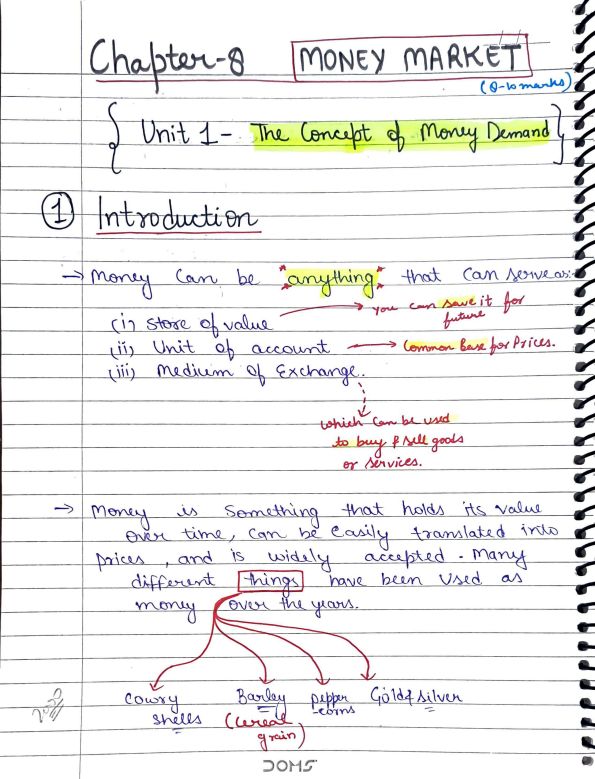 Chapter-8 MONEY MARKET
(8-10 marks)
Unit 1 - The Concept of Money Demand
① Introduction
→ Money can be *anything* that can serve as:-
(i) store of value → you can save it for future
(ii) Unit of account → Common Base for Prices.
(iii) Medium of Exchange.
which can be used
to buy & sell goods
or services.
→ Money is something that holds its value
over time, can be easily translated into
prices, and is widely accepted. Many
different things have been used as
money over the years.
Cowry shells
Barley (cereal grain)
pepper-corns
Gold & silver
DOMS